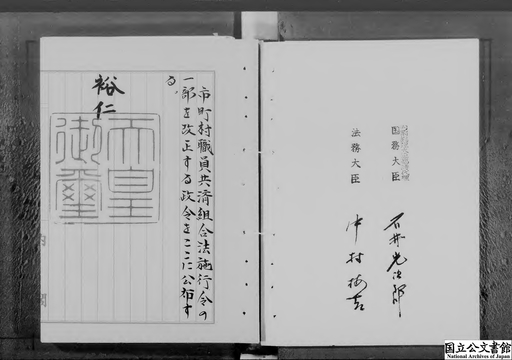 市町村職員共済組合法施行令の
一部を改正する政令をここに公布す
る。
裕仁
天皇
御璽
国務大臣
石井光次郎
法務大臣
中村梅吉
国立公文書館
National Archives of Japan